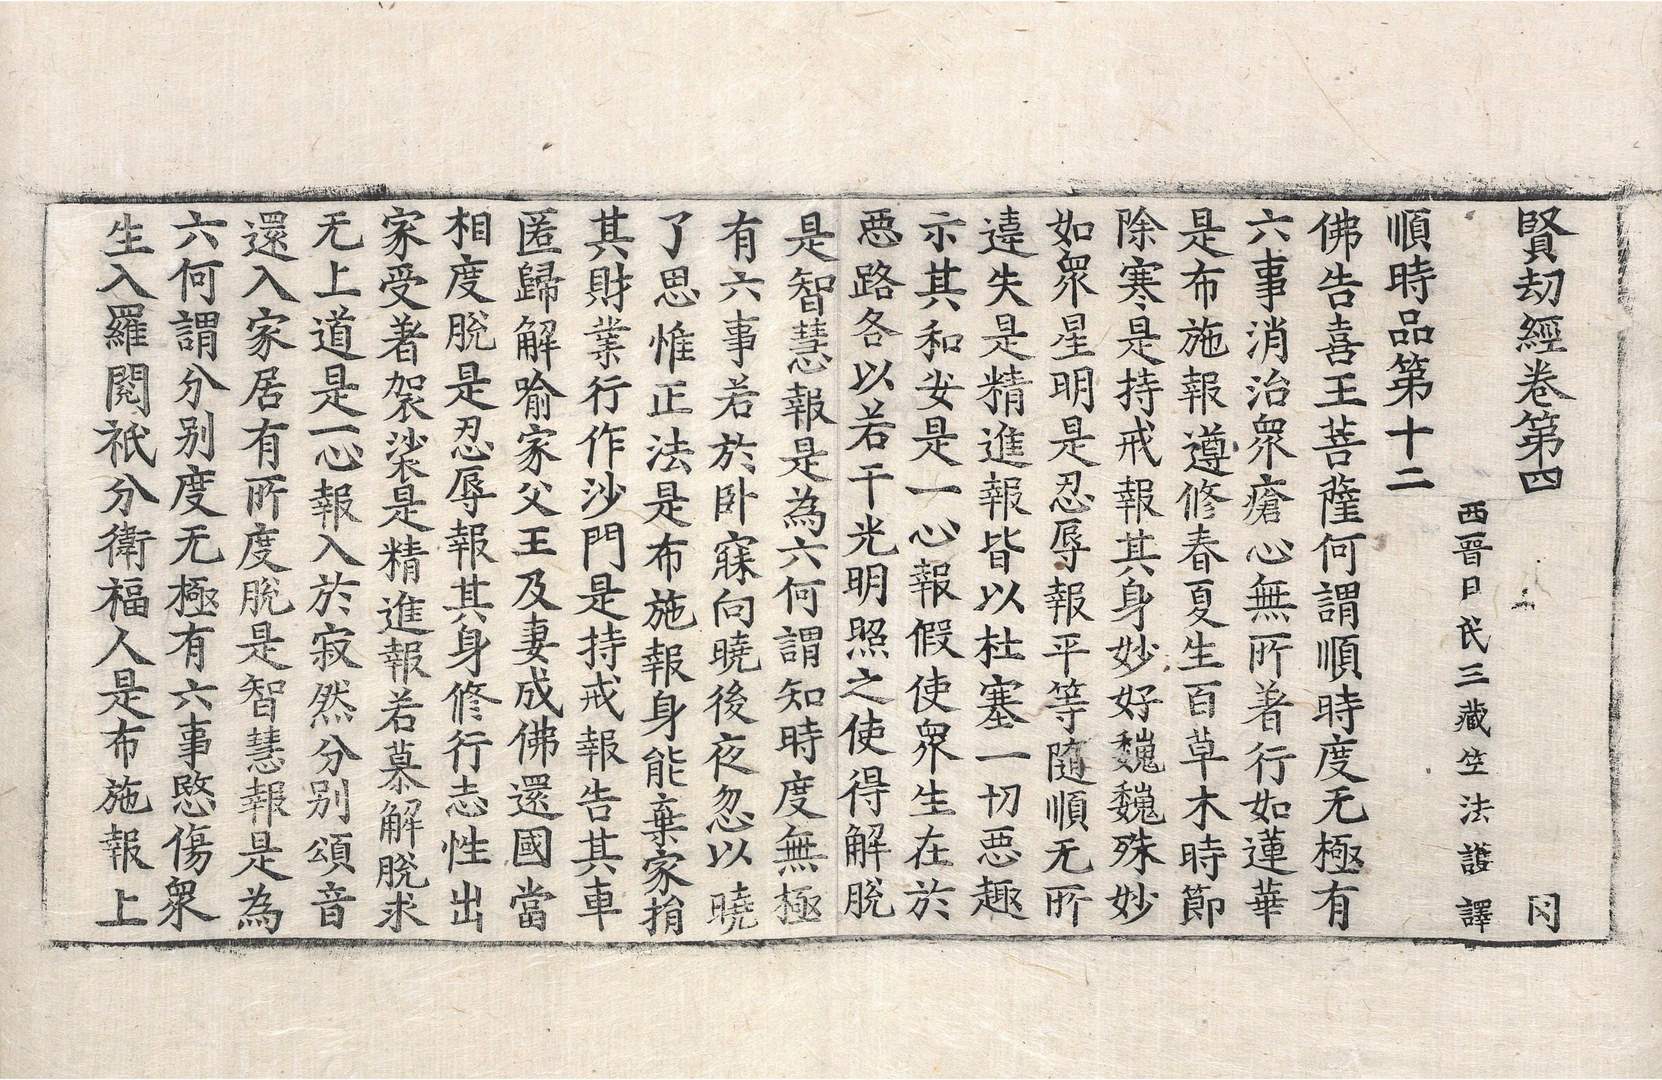 賢劫經卷第四 罔
西晉月氏三藏竺法護譯
順時品第十二
佛告喜王菩薩何謂順時度无極有
六事消治衆瘡心無所著行如蓮華
是布施報遵修春夏生百草木時節
除寒是持戒報其身妙好巍巍殊妙
如衆星明是忍辱報平等隨順无所
違失是精進報皆以杜塞一切惡趣
示其和安是一心報假使衆生在於
惡路各以若干光明照之使得解脫
是智慧報是為六何謂知時度無極
有六事若於臥寐向曉後夜忽以曉
了思惟正法是布施報身能棄家捐
其財業行作沙門是持戒報告其車
匿歸解喻家父王及妻成佛還國當
相度脫是忍辱報其身修行志性出
家受著袈裟是精進報若慕解脫求
无上道是一心報入於寂然分別頌音
還入家居有所度脫是智慧報是為
六何謂分別度无極有六事愍傷衆
生入羅閱祇分衛福人是布施報上